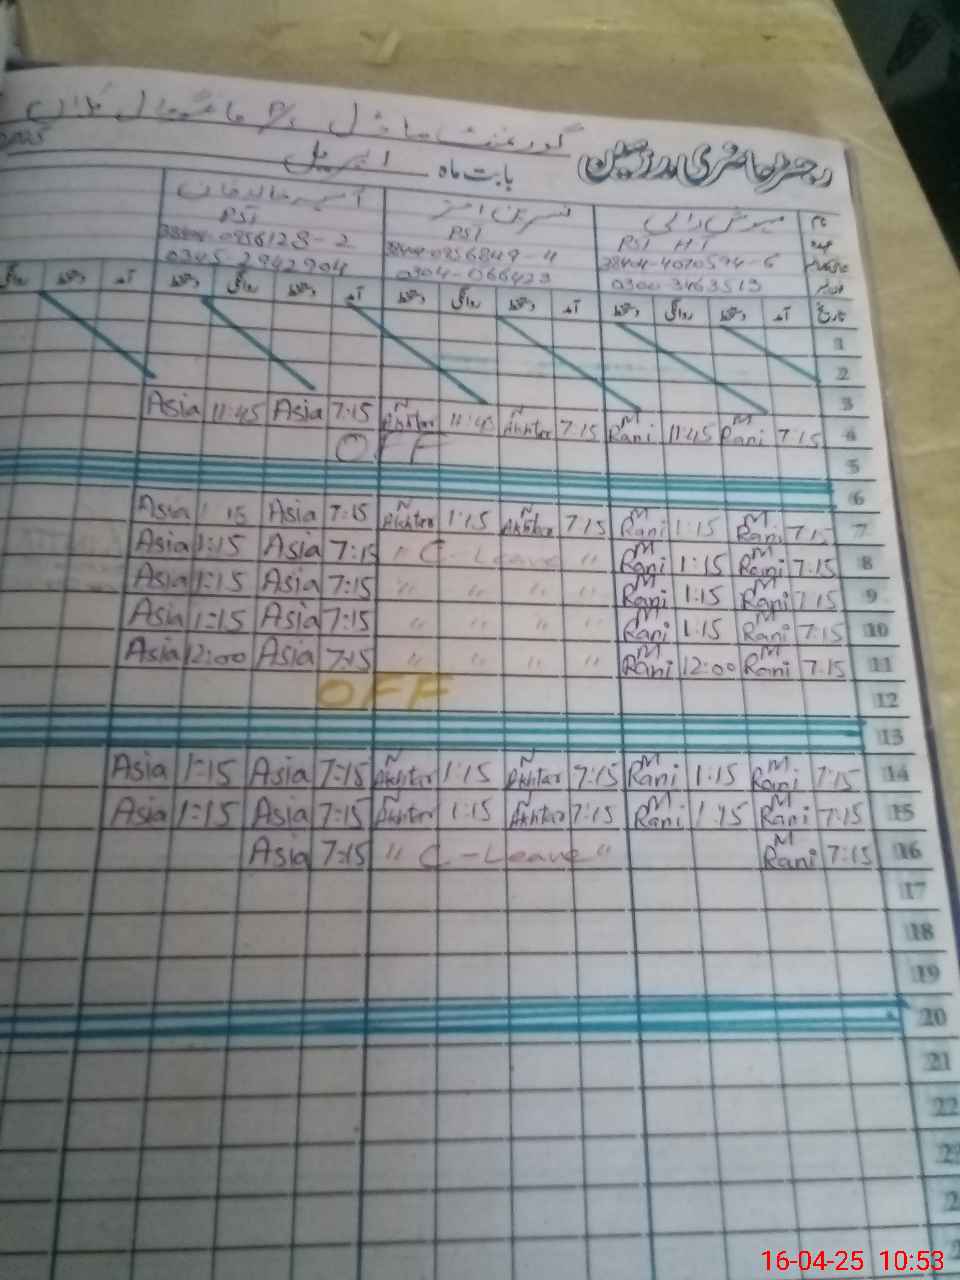 رجسٹر حاضری مدرسین گورنمنٹ ماڈل
بابت ماہ اپریل
نام
عہدہ PST HT PST PST
38404-4070594-6
0300-3463513 0304-066423 0345-2942904
تاریخ آمد دستخط روانگی دستخط آمد دستخط روانگی دستخط آمد دستخط روانگی دستخط آمد دستخط روانگی
1
2
3
4 7:15 M Rani 11:45 M Rani 7:15 N Akhtar 11:45 N Akhtar 7:15 Asia 11:45 Asia
5 OFF
6
7 7:15 M Rani 1:15 M Rani 7:15 N Akhtar 1:15 N Akhtar 7:15 Asia 1:15 Asia
8 7:15 M Rani 1:15 M Rani " C-Leave " 7:15 Asia 1:15 Asia
9 7:15 M Rani 1:15 M Rani " " " " 7:15 Asia 1:15 Asia
10 7:15 M Rani 1:15 M Rani " " " " 7:15 Asia 1:15 Asia
11 7:15 M Rani 12:00 M Rani " " " " 7:15 Asia 12:00 Asia
12 OFF
13
14 7:15 M Rani 1:15 M Rani 7:15 N Akhtar 1:15 N Akhtar 7:15 Asia 1:15 Asia
15 7:15 M Rani 1:15 M Rani 7:15 N Akhtar 1:15 N Akhtar 7:15 Asia 1:15 Asia
16 7:15 M Rani " C-Leave " 7:15 Asia
17
18
19
20
21
22
16-04-25 10:53